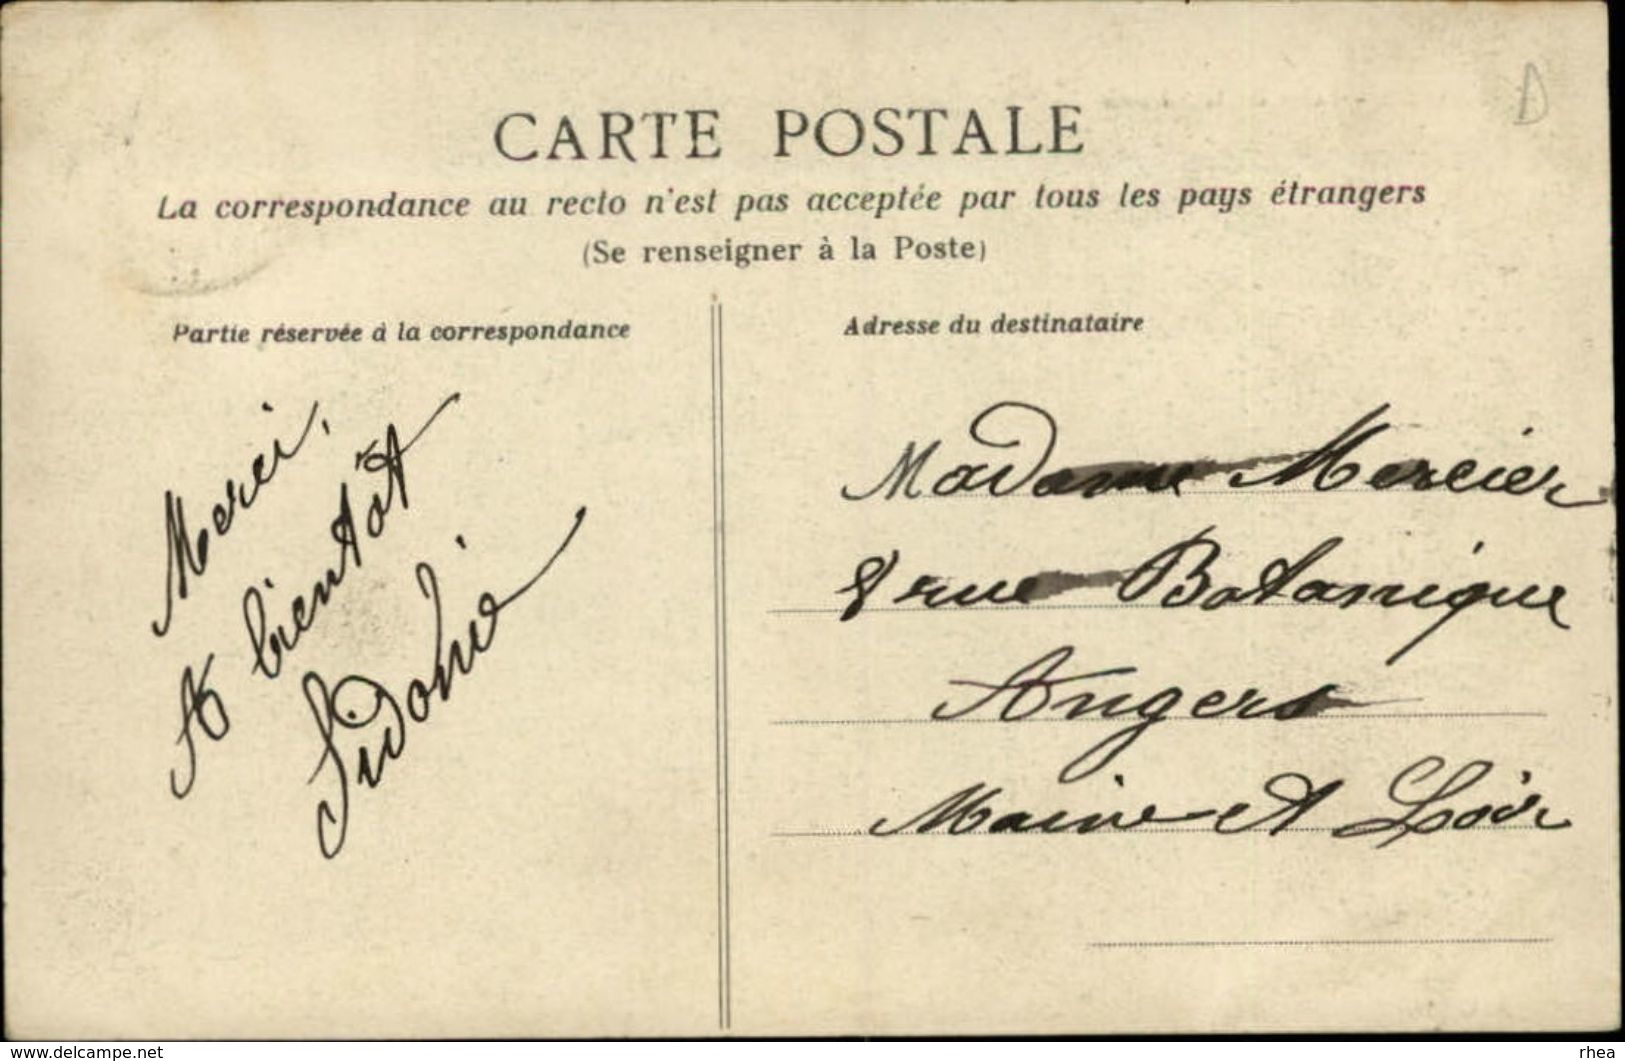 D
CARTE POSTALE
La correspondance au recto n'est pas acceptée par tous les pays étrangers
(Se renseigner à la Poste)
Partie réservée à la correspondance
Merci,
A bientôt
Sidonie
Adresse du destinataire
Madame Mercier
8 rue Botanique
Angers
Maine et Loir
www.delcampe.net
rhea